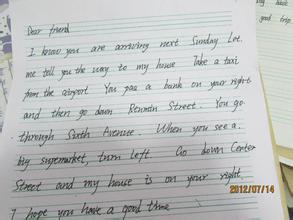 Dear friend
I know you are arriving next Sunday Let
me tell you the way to my house Take a taxi
from the airport You pas a bank on your right
and then go down Street. You go
through Sixth Avenue. When you see a
big supermarket, turn left. Go down Center
Street and my house is on your right,
I hope you have a good time
good trip
2012/07/14